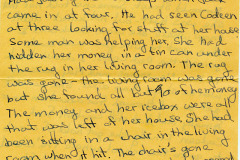 came in at four. He had seen Codeen
at three looking for stuff at her house
Some man was helping her. She had
hidden her money in a tin can under
the rug in her living room. The rug
was gone - the living room was gone
but she found all but 90 of her money
The money and her icebox were all
that was left of her house. She had
been sitting in a chair in the living
room when it hit. The chair's gone